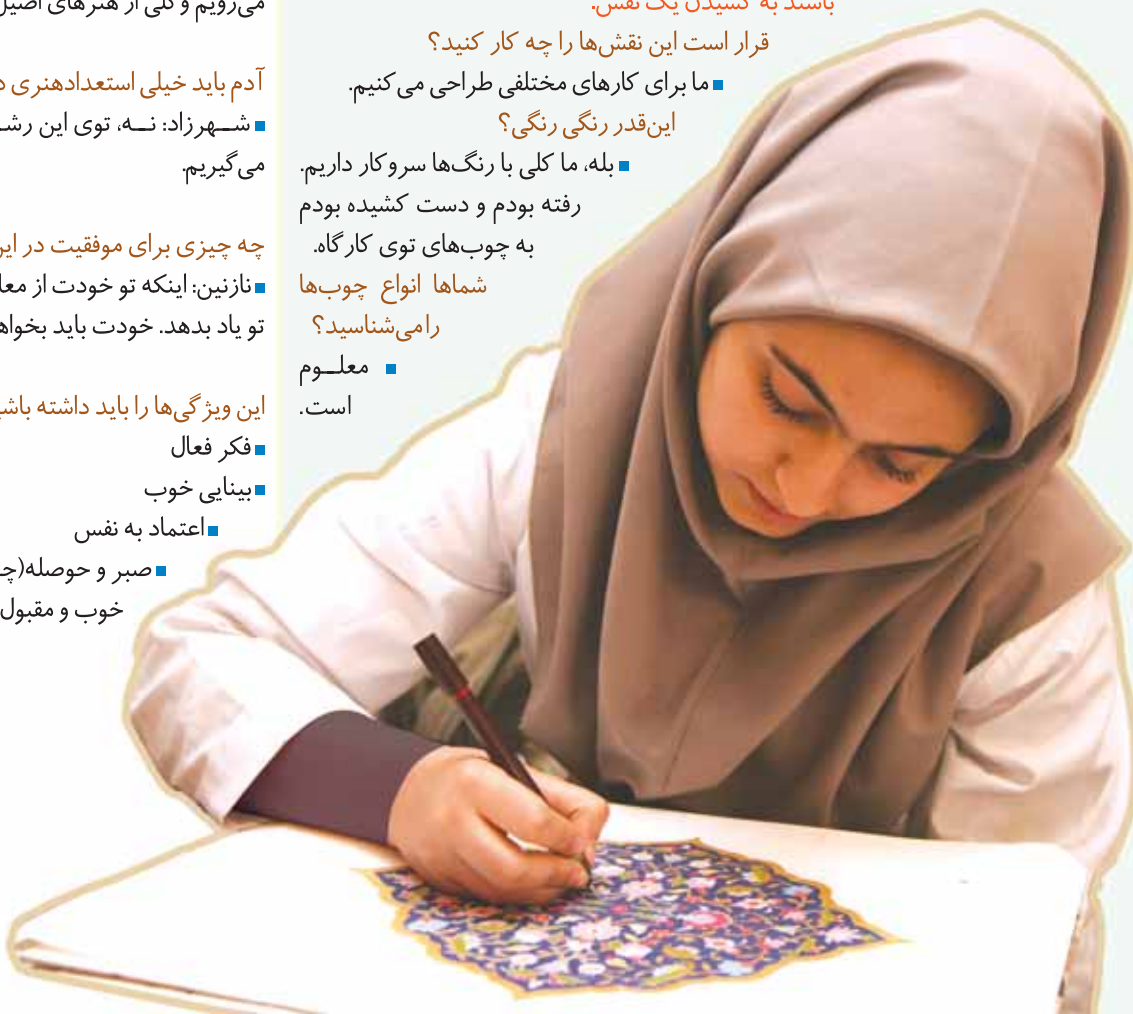 باشند به کشیدن یک نقش.
قرار است این نقش‌ها را چه کار کنید؟
■ ما برای کارهای مختلفی طراحی می‌کنیم.
این‌قدر رنگی رنگی؟
■ بله، ما کلی با رنگ‌ها سروکار داریم.
رفته بودم و دست کشیده بودم
به چوب‌های توی کارگاه.
شماها انواع چوب‌ها
رامی‌شناسید؟
■ معلــوم
است.
می‌رویم و کلی از هنرهای اصیل
آدم باید خیلی استعدادهنری
■ شــهرزاد: نــه، توی این
می‌گیریم.
چه چیزی برای موفقیت در
■ نازنین: اینکه تو خودت از
تو یاد بدهد. خودت باید
این ویژگی‌ها را باید داشته
■ فکر فعال
■ بینایی خوب
■ اعتماد به نفس
■ صبر و حوصله(
خوب و مقبول